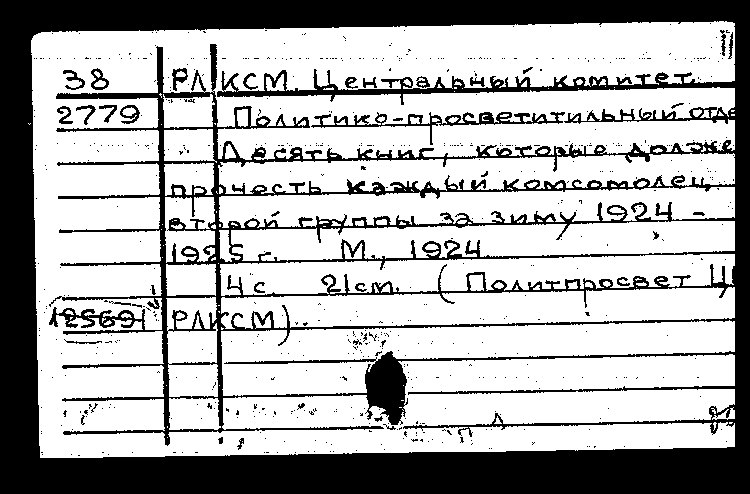 38 РЛКСМ. Центральный комитет.
2779 Политико-просветитильный отде
Десять книг, которые долже
прочесть каждый комсомолец
второй группы за зиму 1924 -
1925 г. М., 1924
4 с. 21 см. (Политпросвет Ц
125691 РЛКСМ).